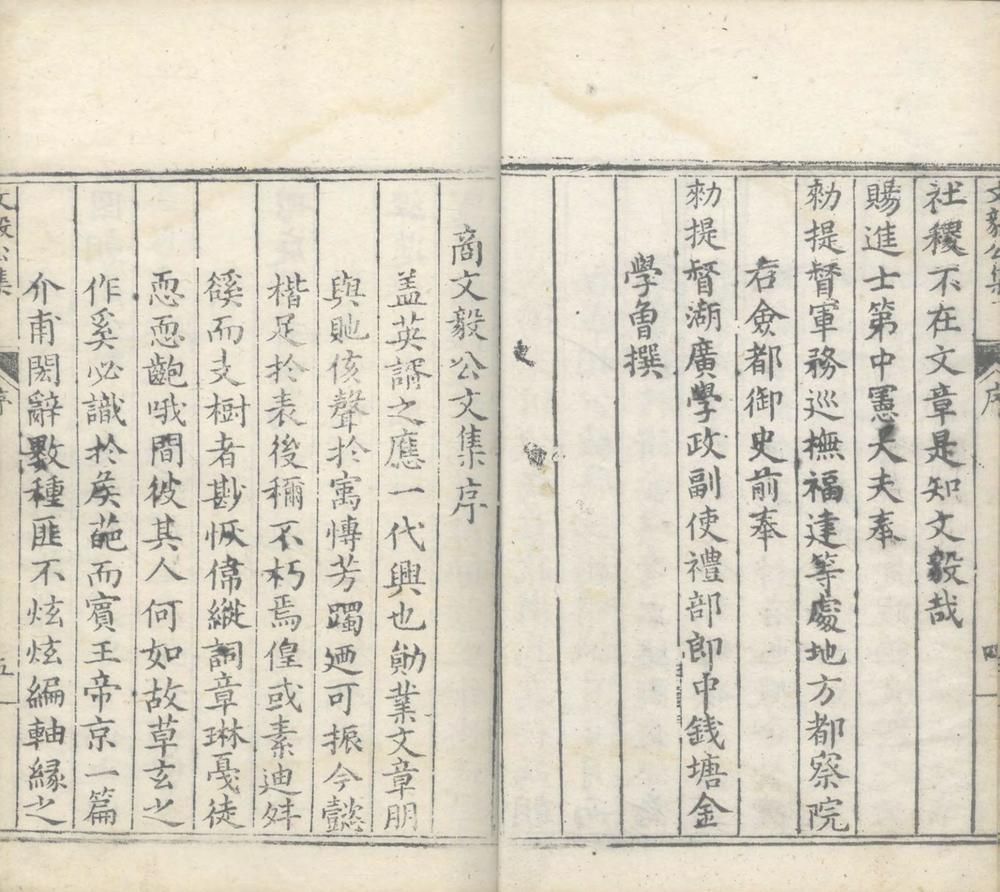 社稷不在文章是知文毅哉
賜進士第中憲大夫奉
勑提督軍務巡撫福建等處地方都察院
右僉都御史前奉
勑提督湖廣學政副使禮部郎中錢塘金
學曾撰
商文毅公文集序
盖英諝之應一代興也勛業文章朋
與貤侅聲於寓慱芳躅迺可振今懿
楷足於表後稱不朽焉偟或素迪舛
谿而支樹者尠恢偉縱詞章琳戞徒
而而齙哦間彼其人何如故草玄之
作奚必識於矦葩而賓王帝京一篇
介甫閎辭數種匪不炫炫編軸緣之
文毅公集
序
四
文毅公集
序
五